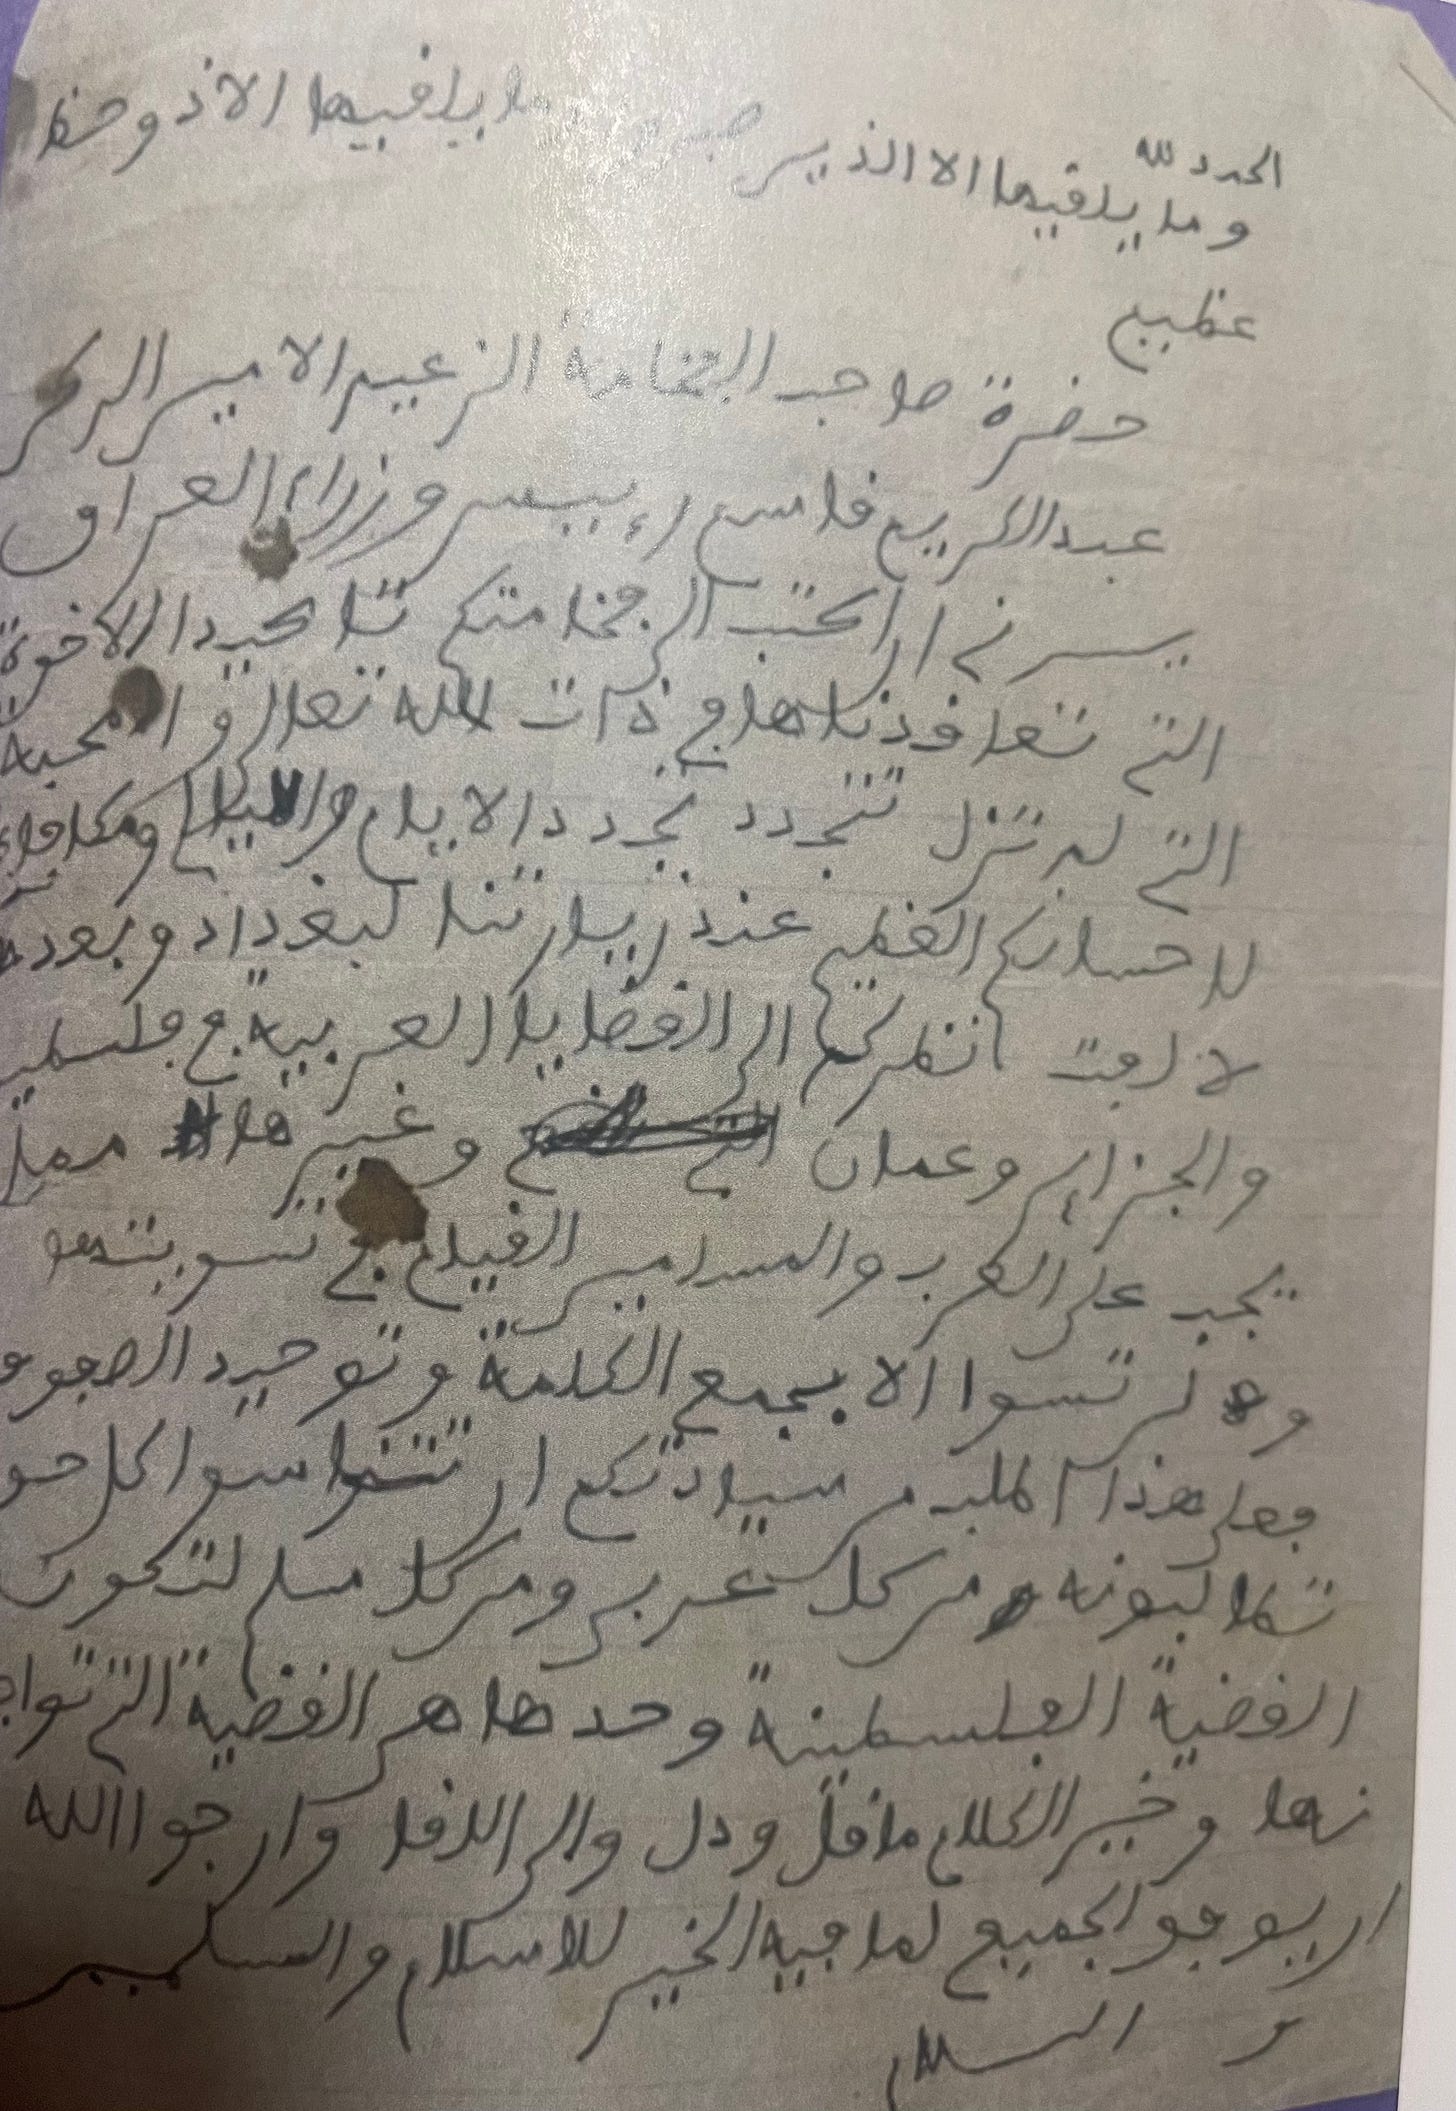 الحمد لله
وما يلقيها الا الذين صبروا وما يلقيها الا ذو حظ
عظيم
حضرة صاحب الفخامة الزعيم الامير الركن
عبد الكريم قاسم رءييس وزراء العراق
يسرني ان اكتب الى فخامتكم تاكيدا للاخوة
التي تعاقدناها في ذات الله تعالى و المحبة
التي لن تزل تتجدد بجدد الايام والليالي ومكافاة
لاحسانكم العظيم عند زيارتنا لبغداد وبعده
لا زلت انظركم الى القضايا العربية في فلسطين
والجزاير وعمان وغيرها مما
يجب على العرب والمسلمين القيام في تسويتها
ولن تسوا الا بجمع الكلمة وتوحيد الصفوف
فعلى هذا اطلب من سيادتكم ان تتناسوا كل حق
تطالبونه من كل عربي ومن كل مسلم لتكون
القضية الفلسطينة وحدها هي القضية التي توا
نها وخير الكلام ما قل ودل والى اللقا وارجوا الله
ان يوفق الجميع لما فيه الخير للاسلام والمسلمين
و السلام